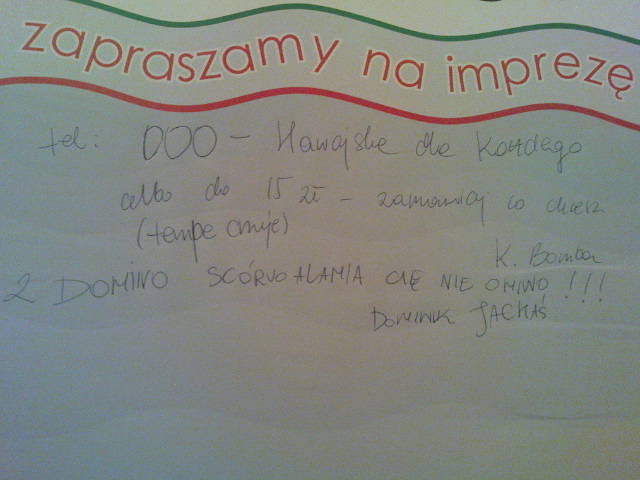 zapraszamy na imprezę
tel: 000 - Hawajskie dla Każdego
albo do 15 zł - zamawiaj co chcesz
(tempe chuje)
K. Bomba
2 DOMINO SCÓRVOALAMIA CIĘ NIE OMINO !!!
DOMINIK JACHAŚ